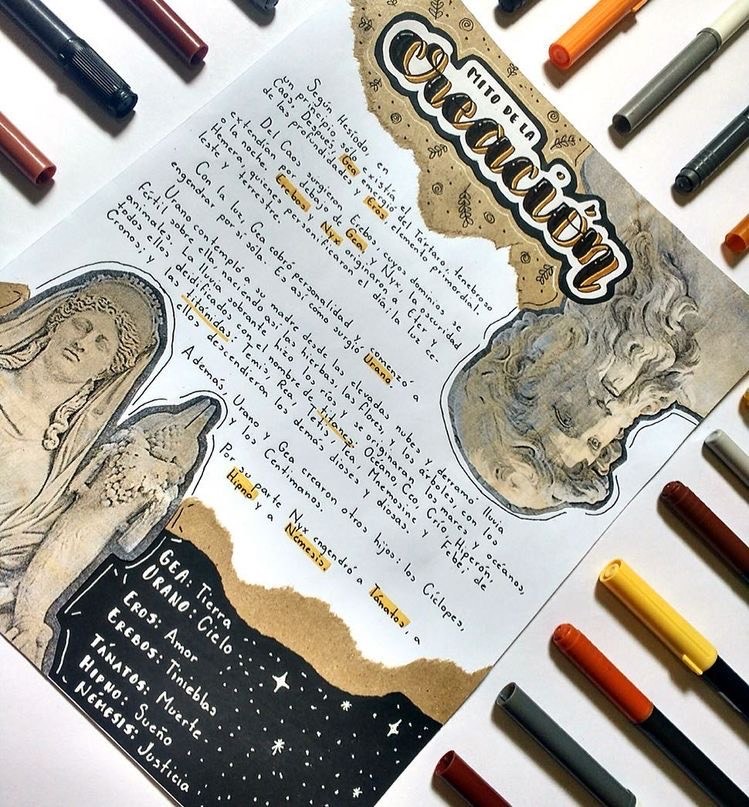 MITO DE LA
Creación
Según Hesíodo, en
un principio sólo existía el
Caos. Después, Gea emergió del Tártaro, tenebroso
de las profundidades y Eros elemento primordial
Del Caos, surgieron Erebo, cuyos dominios se
extendían por debajo de Gea y Nyx, la oscuridad
o la noche. Erebos y Nyx originaron a Eter y
Hemera, quienes personificaron el día, la luz ce
leste y terrestre.
Con la luz, Gea cobró personalidad y comenzó a
engendrar por sí sola. Es así como surgió Urano
Urano contempló a su madre desde las elevadas nubes y derramó lluvia
fértil sobre ella, naciendo así las hierbas, las flores, y los árboles con los
animales. La lluvia sobrante hizo los ríos y se originaron los mares y océanos,
todos ellos, deificados con el nombre de titanes: Océano, Ceo, Crío, Hiperón,
Cronos y las titánidas: Temis, Rea, Tetis, Tea, Mnemosine y Febe; de
ellos descendieron los demás dioses y diosas.
Además, Urano y Gea crearon otros hijos: los Cíclopes,
y los Centimanos.
Por su parte Nyx engendró a Tánatos, a
Hipno y a Némesis
GEA: Tierra
URANO: Cielo
EROS: Amor
EREBOS: Tinieblas
TÁNATOS: Muerte
HIPNO: Sueño
NÉMESIS: Justicia